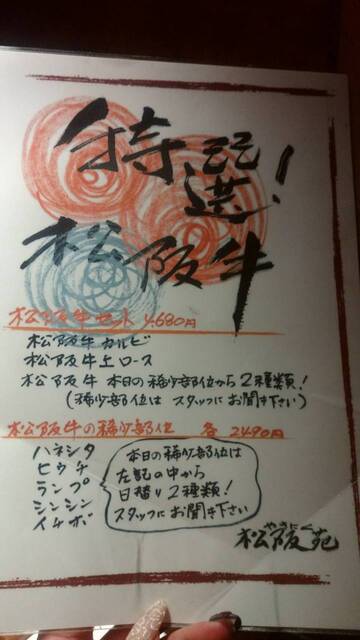 特選!
松阪牛
松阪牛セット 4,680円
松阪牛カルビ
松阪牛上ロース
松阪牛 本日の稀少部位から2種類!
(稀少部位は スタッフにお聞き下さい)
松阪牛の稀少部位 各 2490円
ハネシタ
ヒウチ
ランプ
シンシン
イチボ
本日の稀少部位は
左記の中から
日替り2種類!
スタッフにお聞き下さい
やきにく
松阪苑